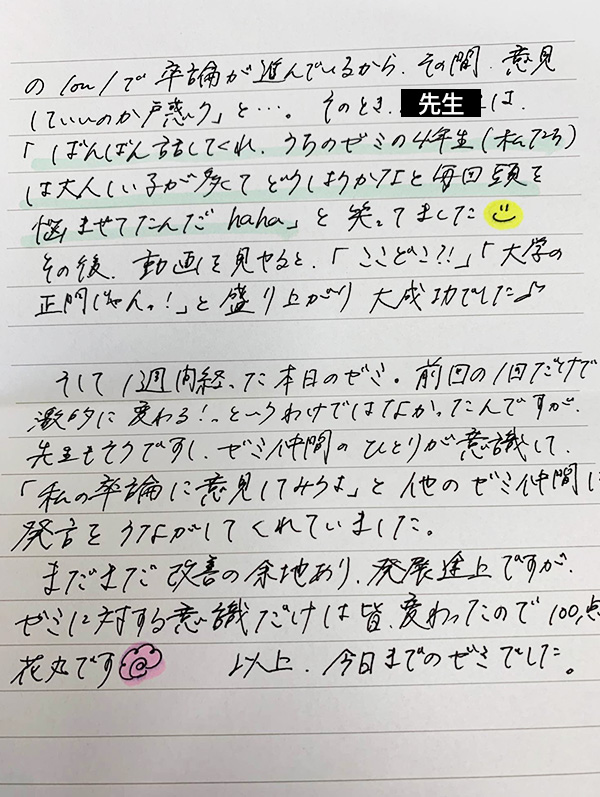 の1on1で卒論が進んでいるから、その間、意見
していいのか戸惑う」と…。そのとき、先生は、
「ばんばん話してくれ、うちのゼミの4年生(私たち)
は大人しい子が多くてどうしようかなと毎回頭を
悩ませてたんだhaha」と笑ってました
その後、動画を見せると、「ここどこ?!」「大学の
正門じゃんっ!」と盛り上がり大成功でした♪
そして1週間経った本日のゼミ。前回の1回だけで
激的に変わる!っというわけではなかったんですが、
先生もそうですし、ゼミ仲間のひとりが意識して、
「私の卒論に意見してみうよ」と他のゼミ仲間に
発言をうながしてくれていました。
まだまだ改善の余地あり、発展途上ですが、
ゼミに対する意識だけは皆、変わったので100点
花丸です 以上、今日までのゼミでした。